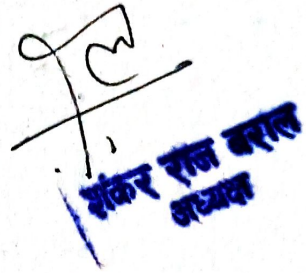 शंकर राज बराल
अध्यक्ष